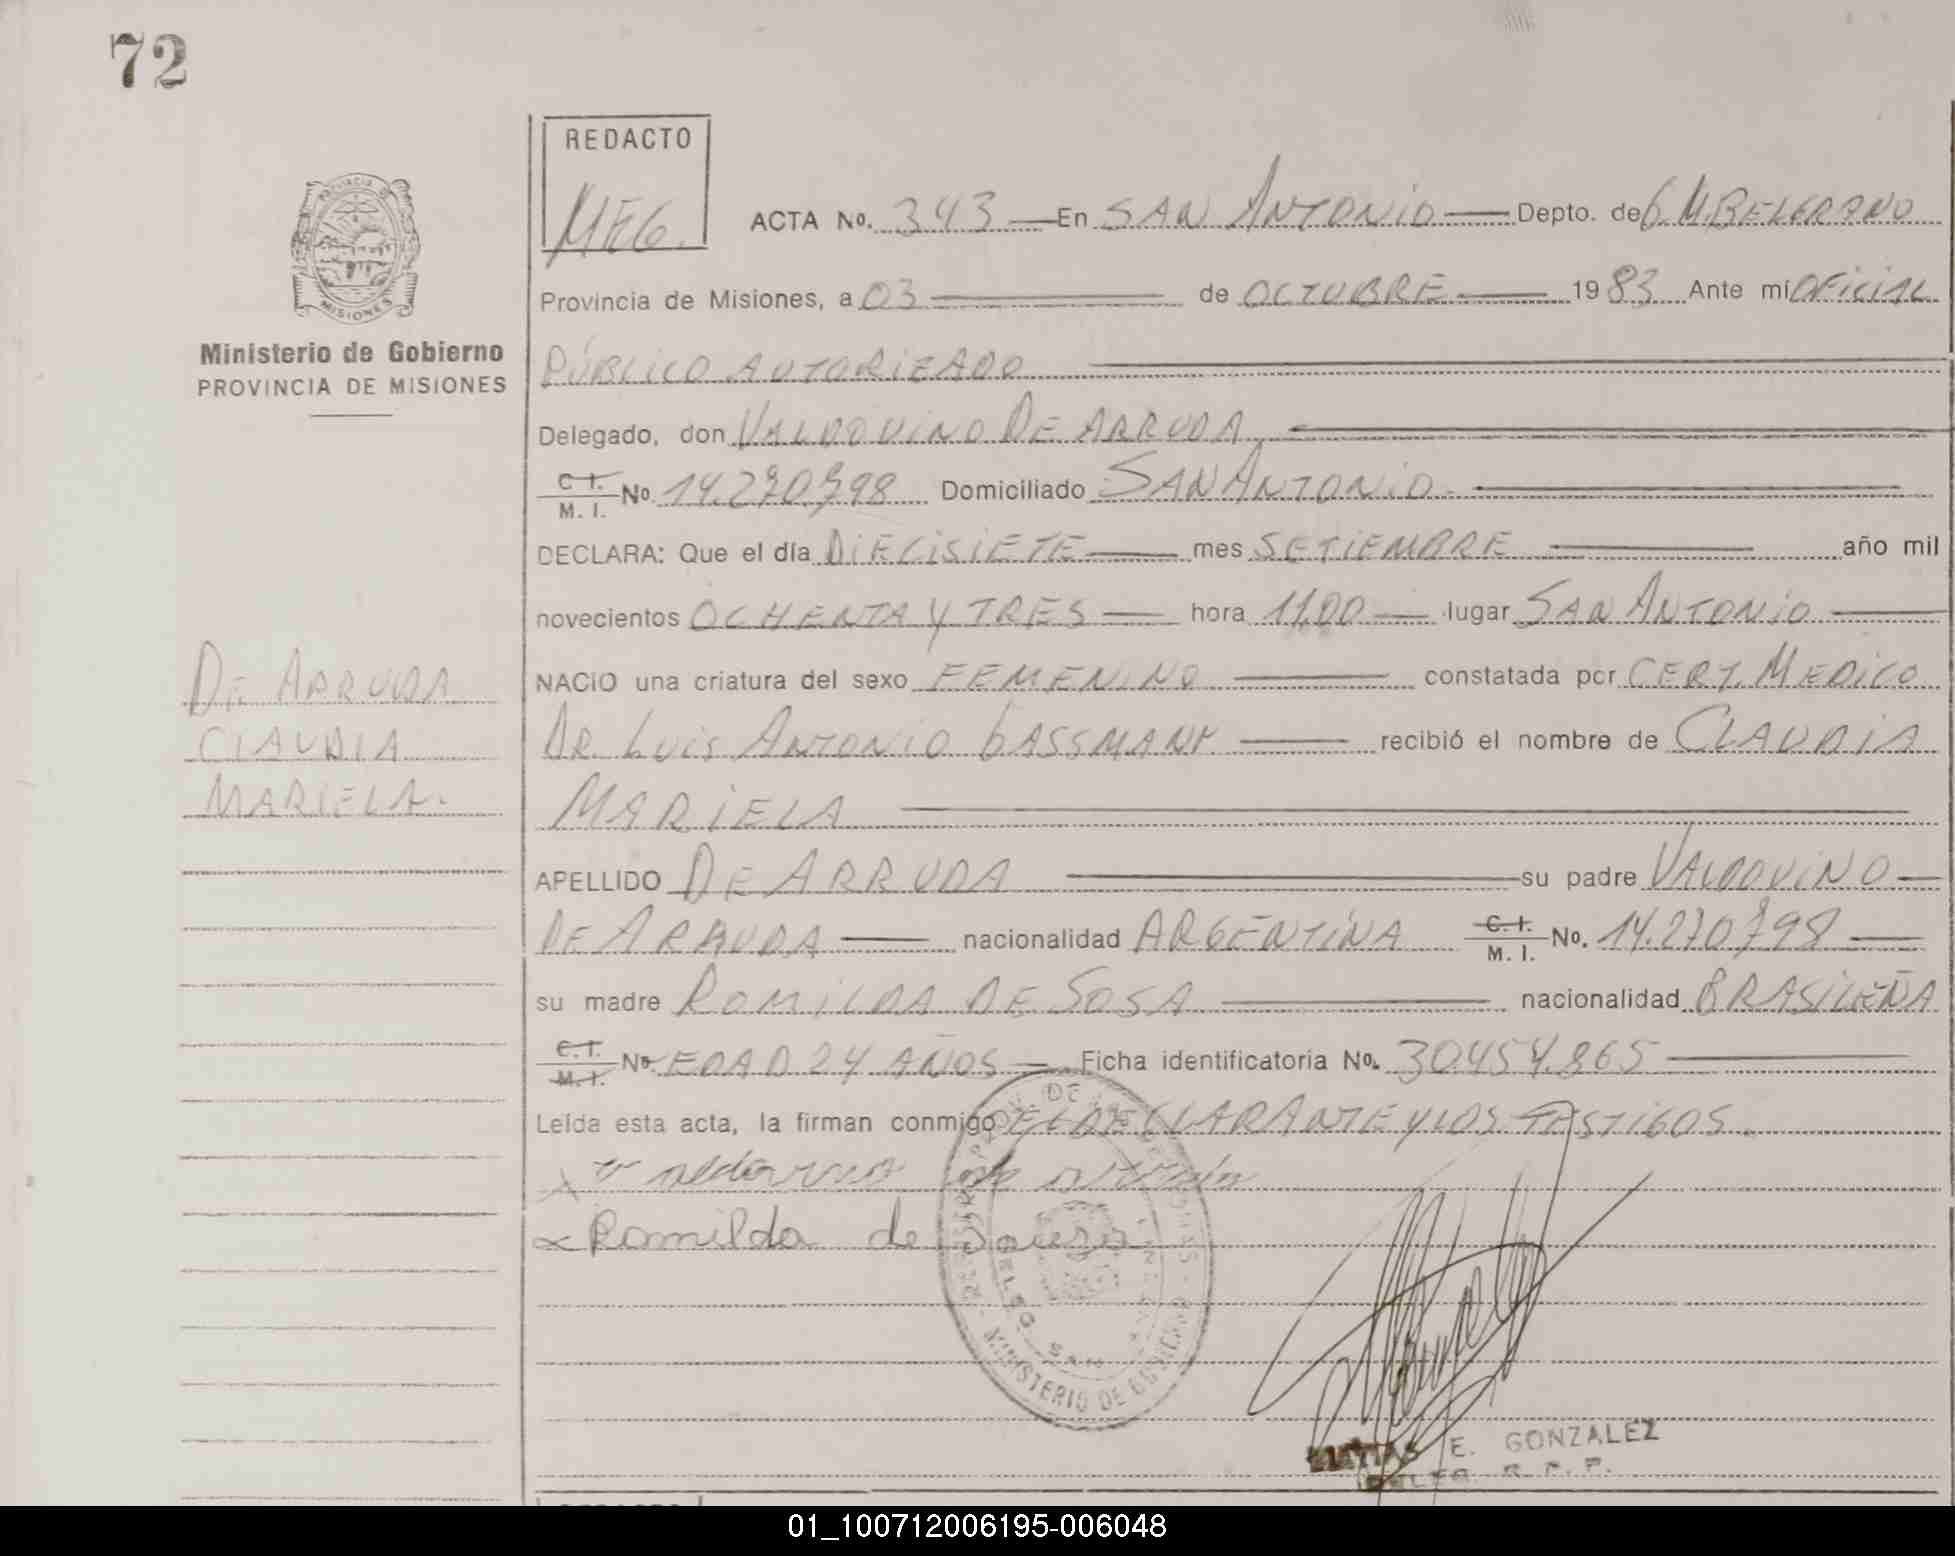 72
REDACTO
MEG.
ACTA No. 343 En SAN ANTONIO Depto. de G. M. BELGRANO
Provincia de Misiones, a 03 de OCTUBRE 1983 Ante mí OFICIAL
PROVINCIA DE
MISIONES
Ministerio de Gobierno
PROVINCIA DE MISIONES
PÚBLICO AUTORIZADO
Delegado, don VALDOVINO DE ARRUDA
C I. M. I. No. 14.270.798 Domiciliado SAN ANTONIO.
DECLARA: Que el día DIECISIETE mes SETIEMBRE año mil
novecientos OCHENTA Y TRES hora 11,00 lugar SAN ANTONIO
DE ARRUDA
CLAUDIA
MARIELA.
NACIO una criatura del sexo FEMENINO constatada por CERT. MEDICO
DR. LUIS ANTONIO GASSMANN recibió el nombre de CLAUDIA
MARIELA
APELLIDO DE ARRUDA su padre VALDOVINO
DE ARRUDA nacionalidad ARGENTINA C. I. M. I. No. 14.270.798
su madre ROMILDA DE SOSA nacionalidad BRASILEÑA
C. I. M. I. No. EDAD 24 AÑOS Ficha identificatoria No. 30.454.865
Leída esta acta, la firman conmigo EL DECLARANTE Y LOS TESTIGOS.
x de
x Romilda de Souza
MINISTERIO DE GOBIERNO
DELEG. SAN
E. GONZALEZ
DELEG. R. P. P.
01_100712006195-006048